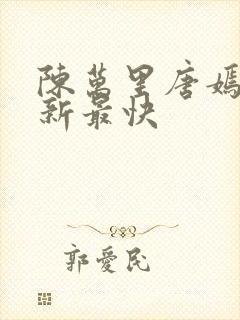 陳萬里唐嫣
新最快
郭愛民